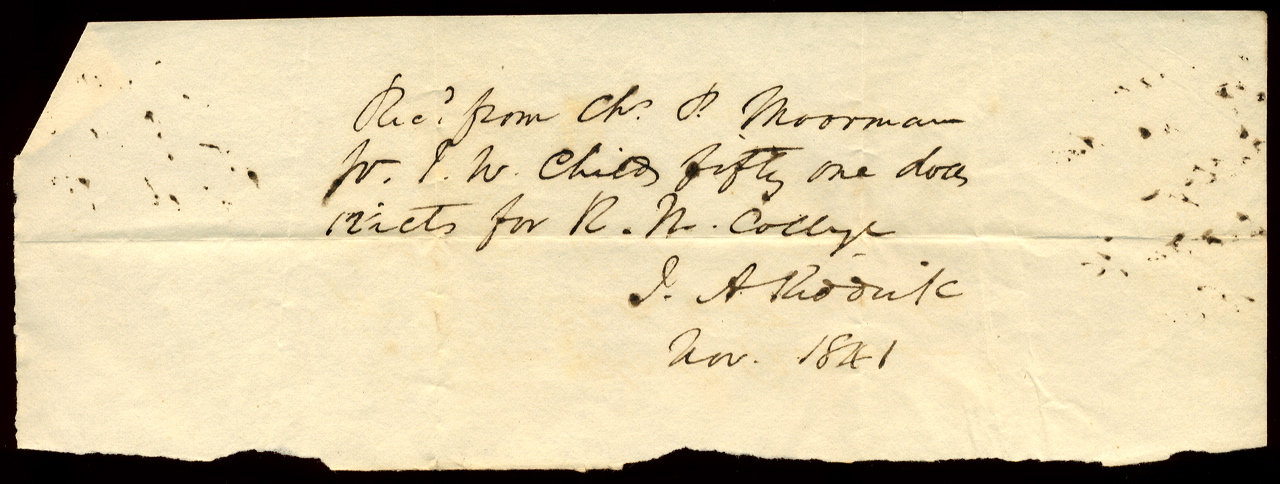 Recd from Chs P. Moorman
for J. W. Childs fifty one dolls
12½ cts for R. M. College
J. A. Riddick
Nov. 1841